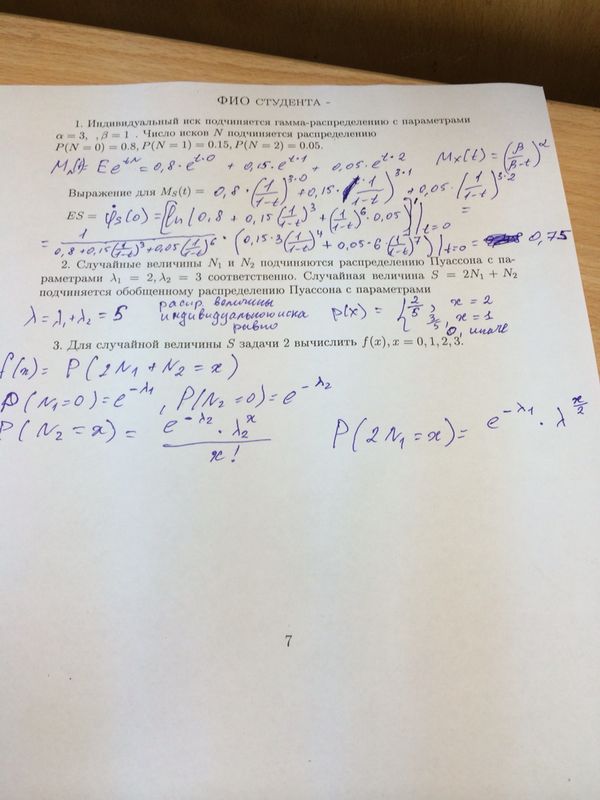 ФИО СТУДЕНТА -
1. Индивидуальный иск подчиняется гамма-распределению с параметрами
α = 3, , β = 1 . Число исков N подчиняется распределению
P(N = 0) = 0.8, P(N = 1) = 0.15, P(N = 2) = 0.05.
= Ee^{tN} = 0,8·e^{t·0} + 0,15·e^{t·1} + 0,05·e^{t·2} M_X(t) = (β/(β-t))^α
Выражение для M_S(t) = 0,8·(1/(1-t))^{3·0} + 0,15·(1/(1-t))^{3·1} + 0,05·(1/(1-t))^{3·2}
ES = φ̇_S(0) = [ln(0,8 + 0,15(1/(1-t))^3 + (1/(1-t))^6·0,05)]'|_{t=0} =
= 1/(0,8+0,15(1/(1-t))^3+0,05(1/(1-t))^6) · (0,15·3(1/(1-t))^4 + 0,05·6(1/(1-t))^7)|_{t=0} = 0,75
2. Случайные величины N₁ и N₂ подчиняются распределению Пуассона с па-
раметрами λ₁ = 2, λ₂ = 3 соответственно. Случайная величина S = 2N₁ + N₂
подчиняется обобщенному распределению Пуассона с параметрами
λ = λ₁ + λ₂ = 5 распр. величины индивидуального иска равно p(x) = { 2/5, x = 2
3/5, x = 1
0, иначе
3. Для случайной величины S задачи 2 вычислить f(x), x = 0, 1, 2, 3.
f(x) = P(2N₁ + N₂ = x)
P(N₁=0) = e^{-λ₁}, P(N₂=0) = e^{-λ₂}
P(N₂ = x) = e^{-λ₂}·λ₂^x / x! P(2N₁ = x) = e^{-λ₁}·λ^{x/2}
7